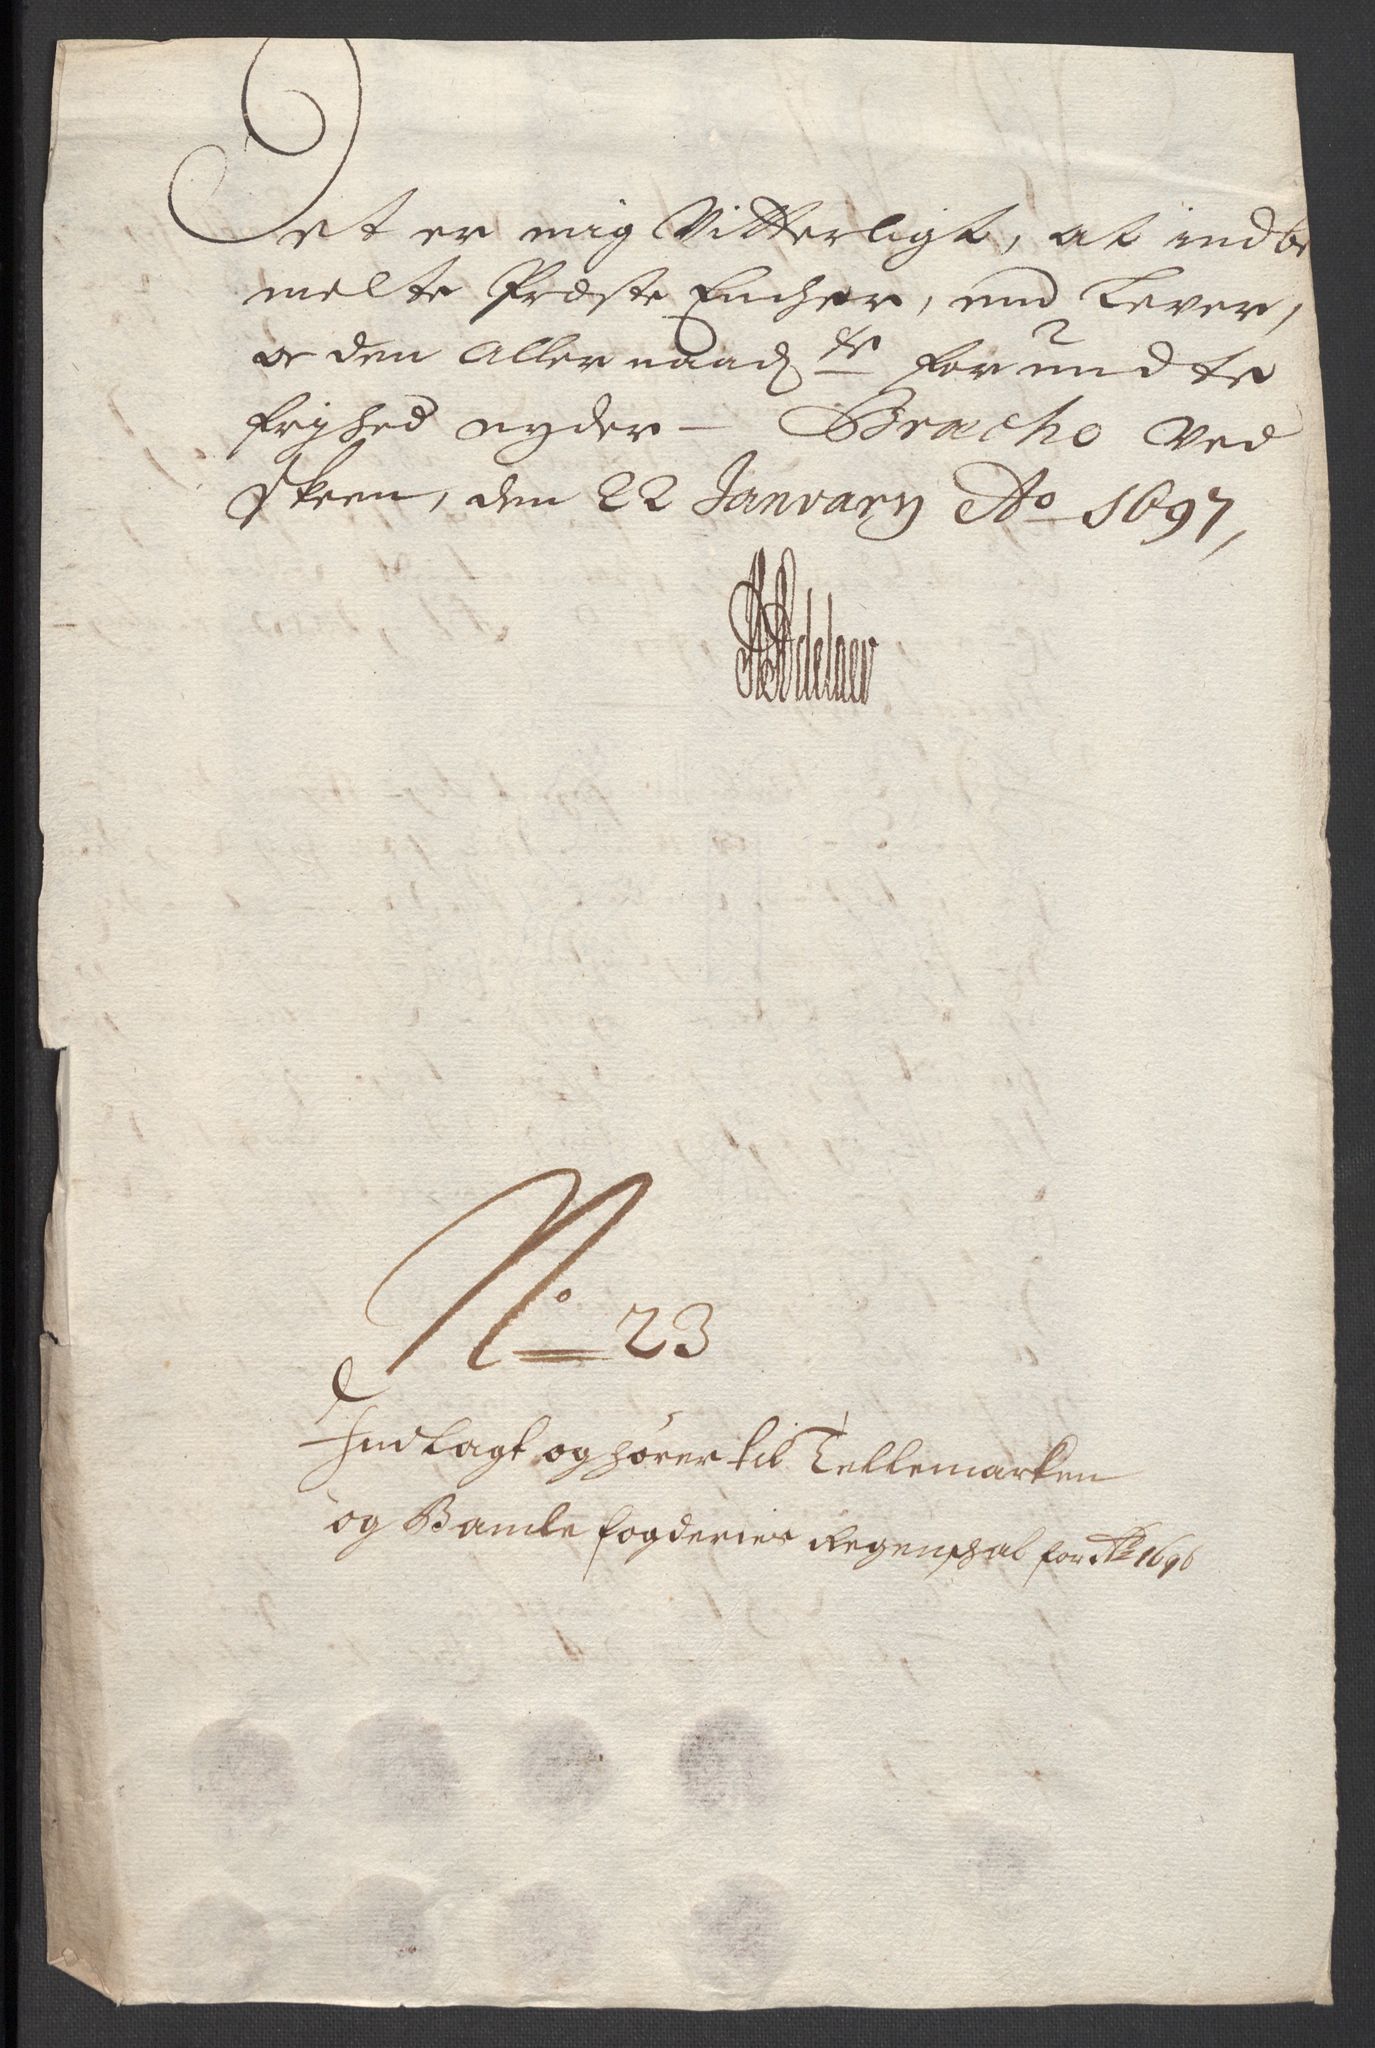 Det er mig Vitterligt, at indbe
melte Præste Encher, end Lever,
oc den Allernaadste forundte
frijhed nyder – Bratcho Ved
Skeen, den 22 January Ao 1697,
Adelaer
No 23
Indlagt og hører til Tellemarken
og Bamle fogderies Regenskab for Ao 1696